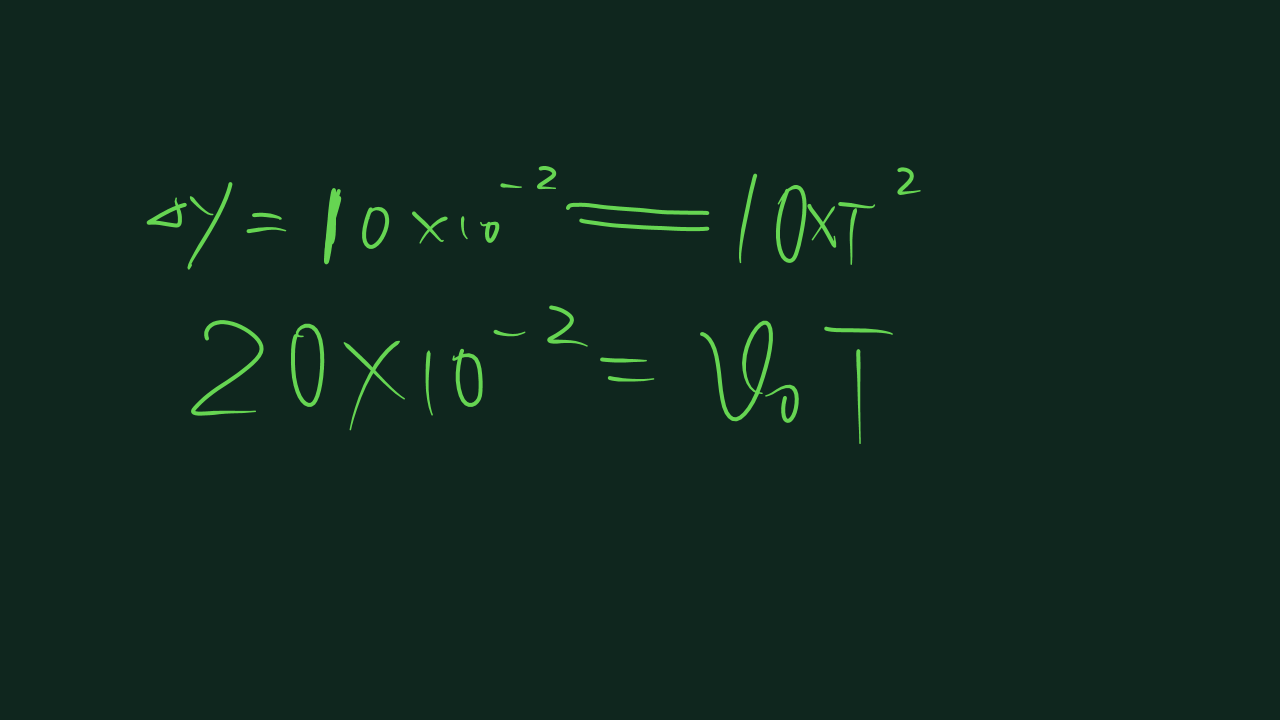 △y = 10×10⁻² = 10×T²
20×10⁻² = v₀T